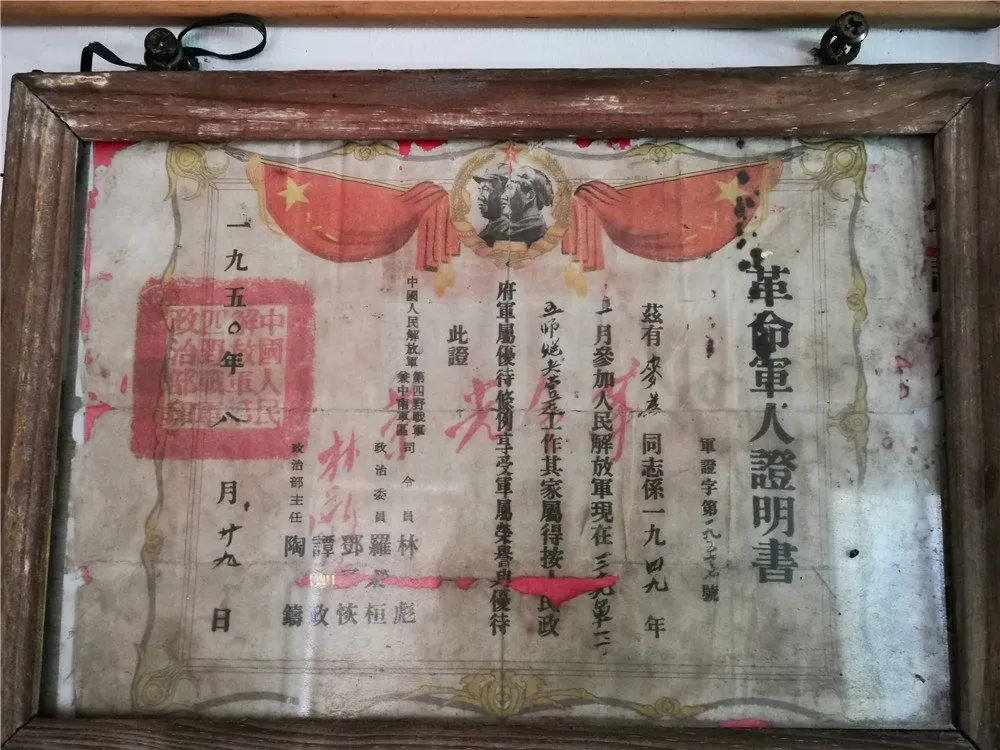 革命軍人證明書
軍證字第 號
茲有麥 同志係一九四九年
月參加人民解放軍現在三九軍一一
五師炮兵營 工作其家屬得按 民政
府軍屬優待條例享受軍屬榮譽與優待
此證
中國人民解放軍第四野戰軍
兼中南軍區
司令員 林彪
政治委員 羅榮桓
鄧子恢
譚政
政治部主任 陶鑄
一九五〇年八月廿九日
中國人民
解放軍第
四野戰軍
政治部
光榮